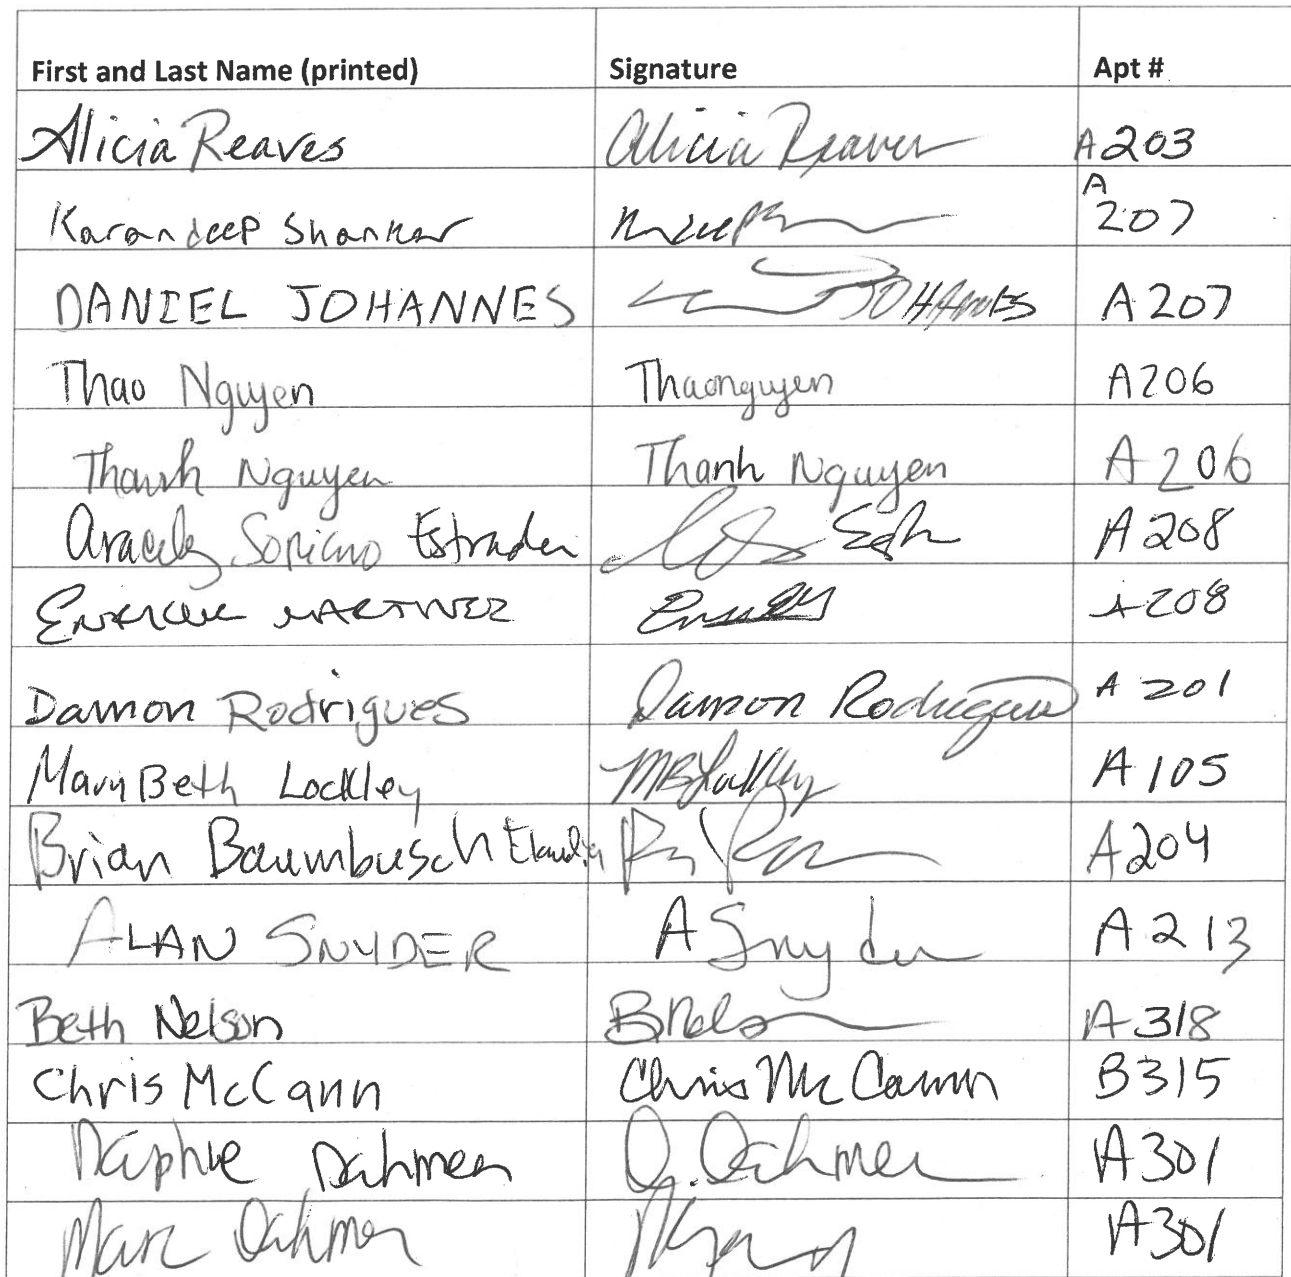 First and Last Name (printed) Signature Apt #
Alicia Reaves Alicia Reaves A203
Karandeep Shankar A 207
DANIEL JOHANNES JOHANNES A207
Thao Nguyen Thaonguyen A206
Thanh Nguyen Thanh Nguyen A206
Aracely Soriano Estrada A208
Enrique MARTINEZ A208
Damon Rodrigues Damon Rodrigues A201
Mary Beth Lockley MBLockley A105
Brian Baumbusch A204
ALAN SNYDER A Snyder A213
Beth Nelson BNelson A318
Chris McCann Chris McCann B315
Daphne Dahmen D. Dahmen A301
Marc Dahmen A301